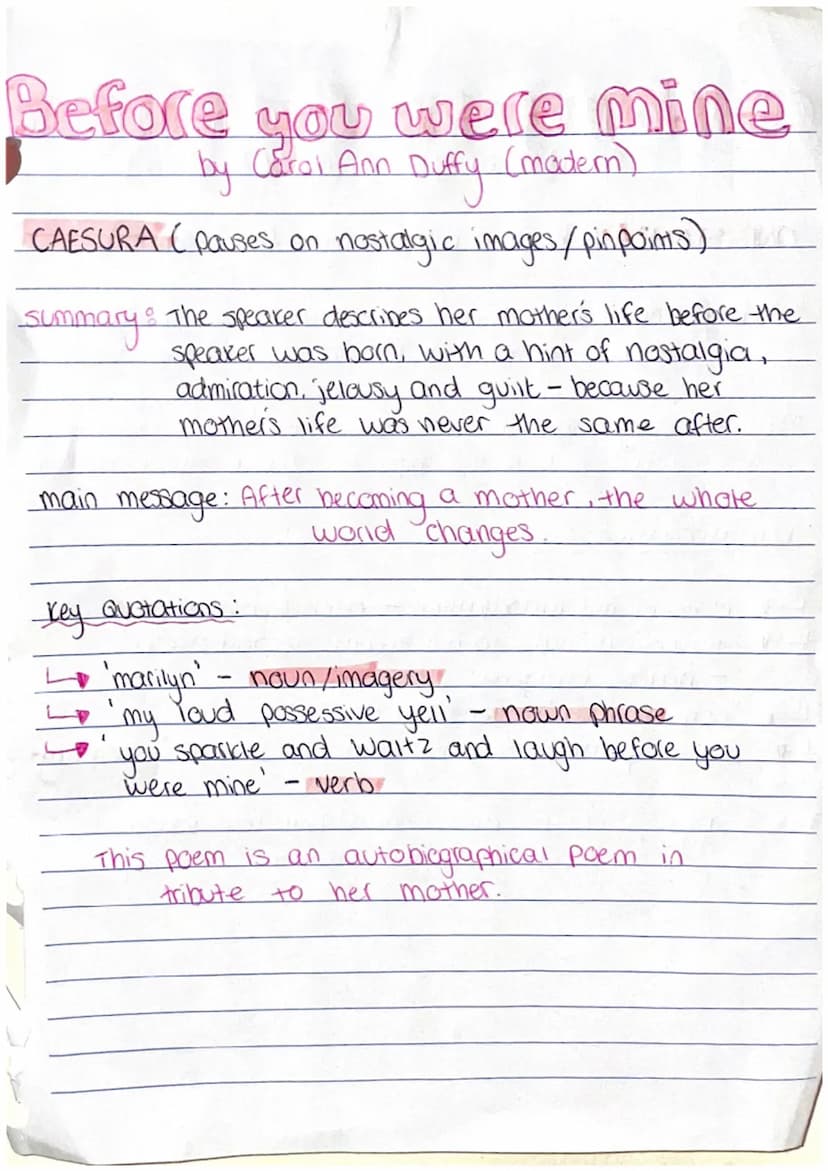 Before you were mine
by Carol Ann Duffy (modern)
CAESURA (pauses on nostalgic images/pinpoints)
summary: The speaker describes her mother's life before the
speaker was born, with a hint of nostalgia,
admiration, jelousy and guilt - because her
mother's life was never the same after.
main message: After becoming a mother, the whole
world changes.
key Quotations:
↳ 'marilyn' - noun/imagery
↳ 'my loud possessive yell' - nown phrase
↳ 'you sparkle and waltz and laugh before you
were mine' - verb
This poem is an autobiographical poem in
tribute to her mother.